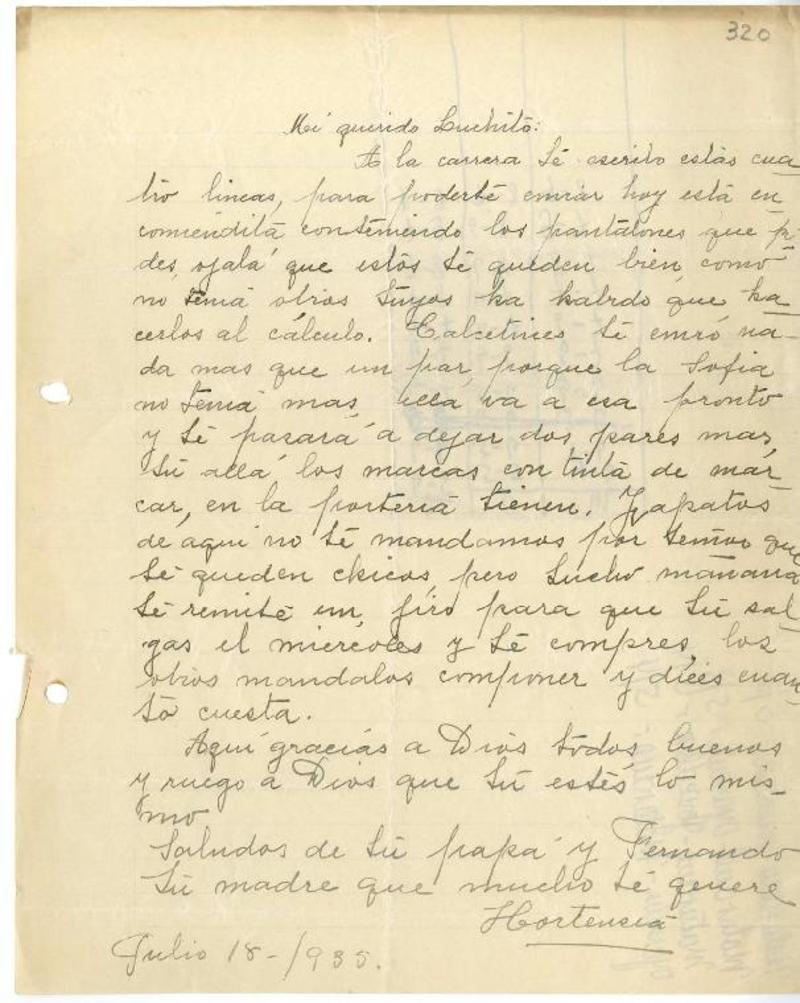 320
Mi querido Luchito:
A la carrera te escribo estas cua
tro lineas, para poderte enviar hoy esta en
comiendita conteniendo los pantalones que pi-
des, ojalá que estos te queden bien, como
no tenia otros tuyos ha habido que ha
cerlos al cálculo. Calcetines te envió na-
da mas que un par, porque la Sofia
no tenia mas, ella va a esa pronto
y te pasará a dejar dos pares mas,
tu allá los marcas con tinta de mar-
car, en la porteria tienen. Zapatos
de aqui no te mandamos por temor que
te queden chicos, pero Lucho mañana
te remite un jiro para que tu sal-
gas el miercoles y te compres, los
otros mandalos componer y dices cuan-
to cuesta.
Aquí gracias a Dios todos buenos
y ruego a Dios que tu estés lo mis-
mo
Saludos de tu papá y Fernando
tu madre que mucho te quiere
Hortensia
Julio 18-/935.